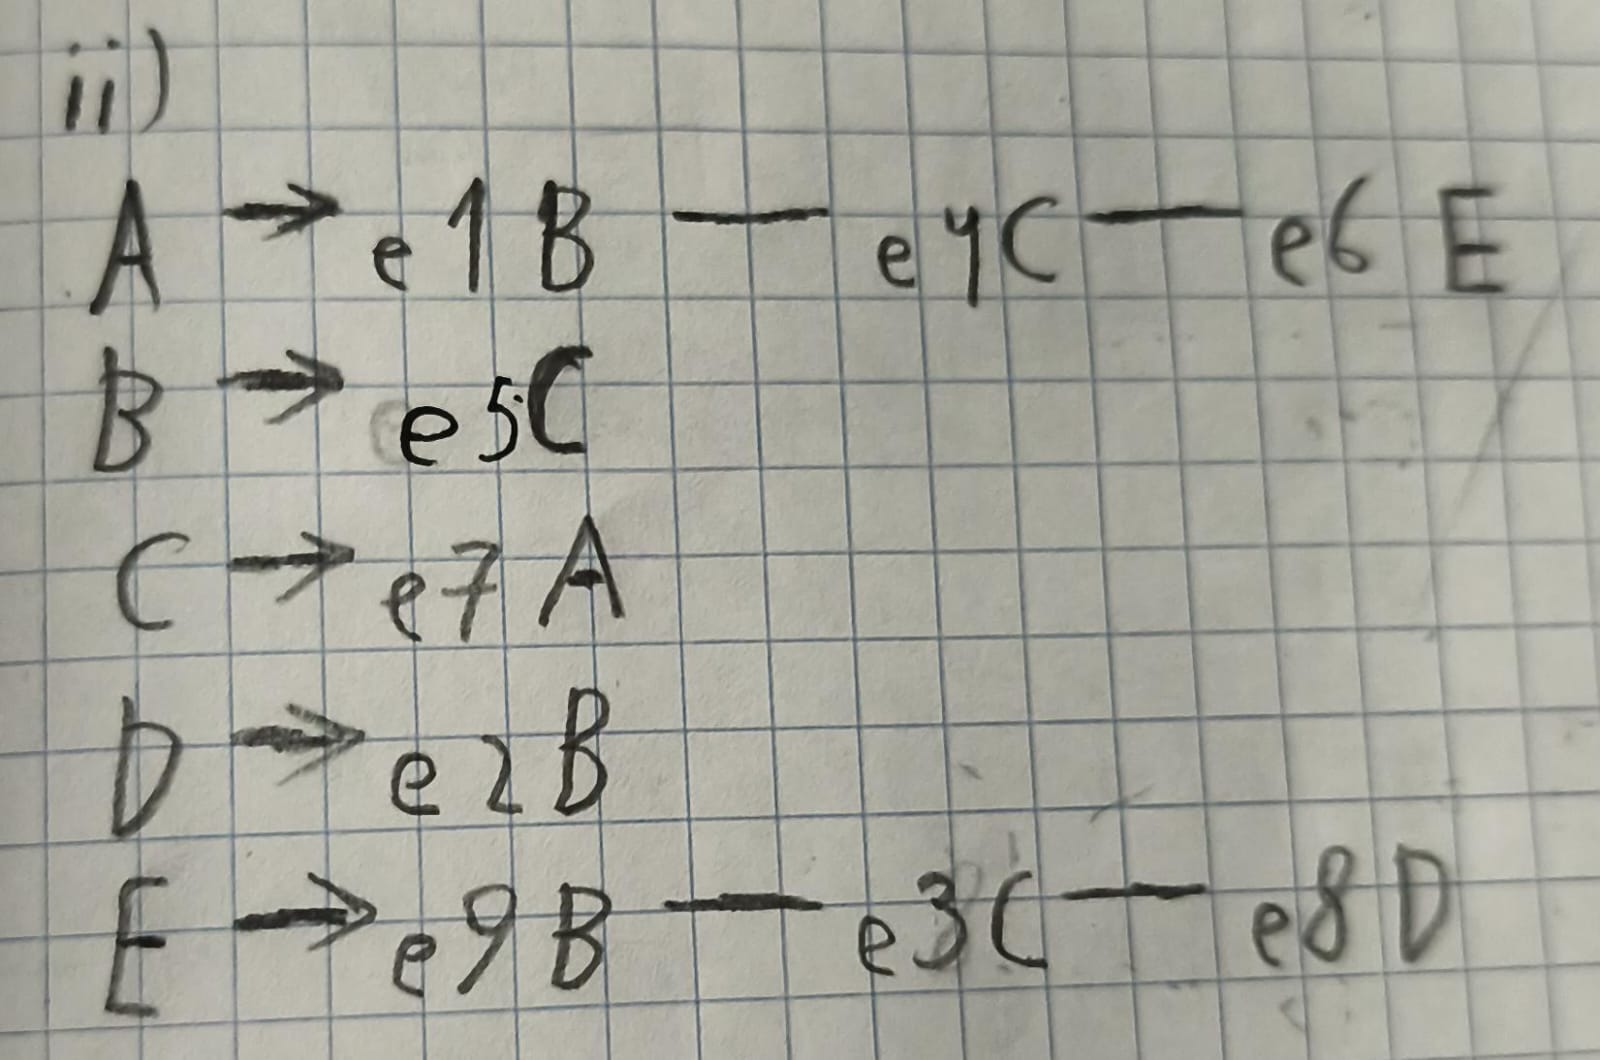 ii)
A → e1 B — e4 C — e6 E
B → e5C
C → e7 A
D → e2 B
E → e9 B — e3 C — e8 D